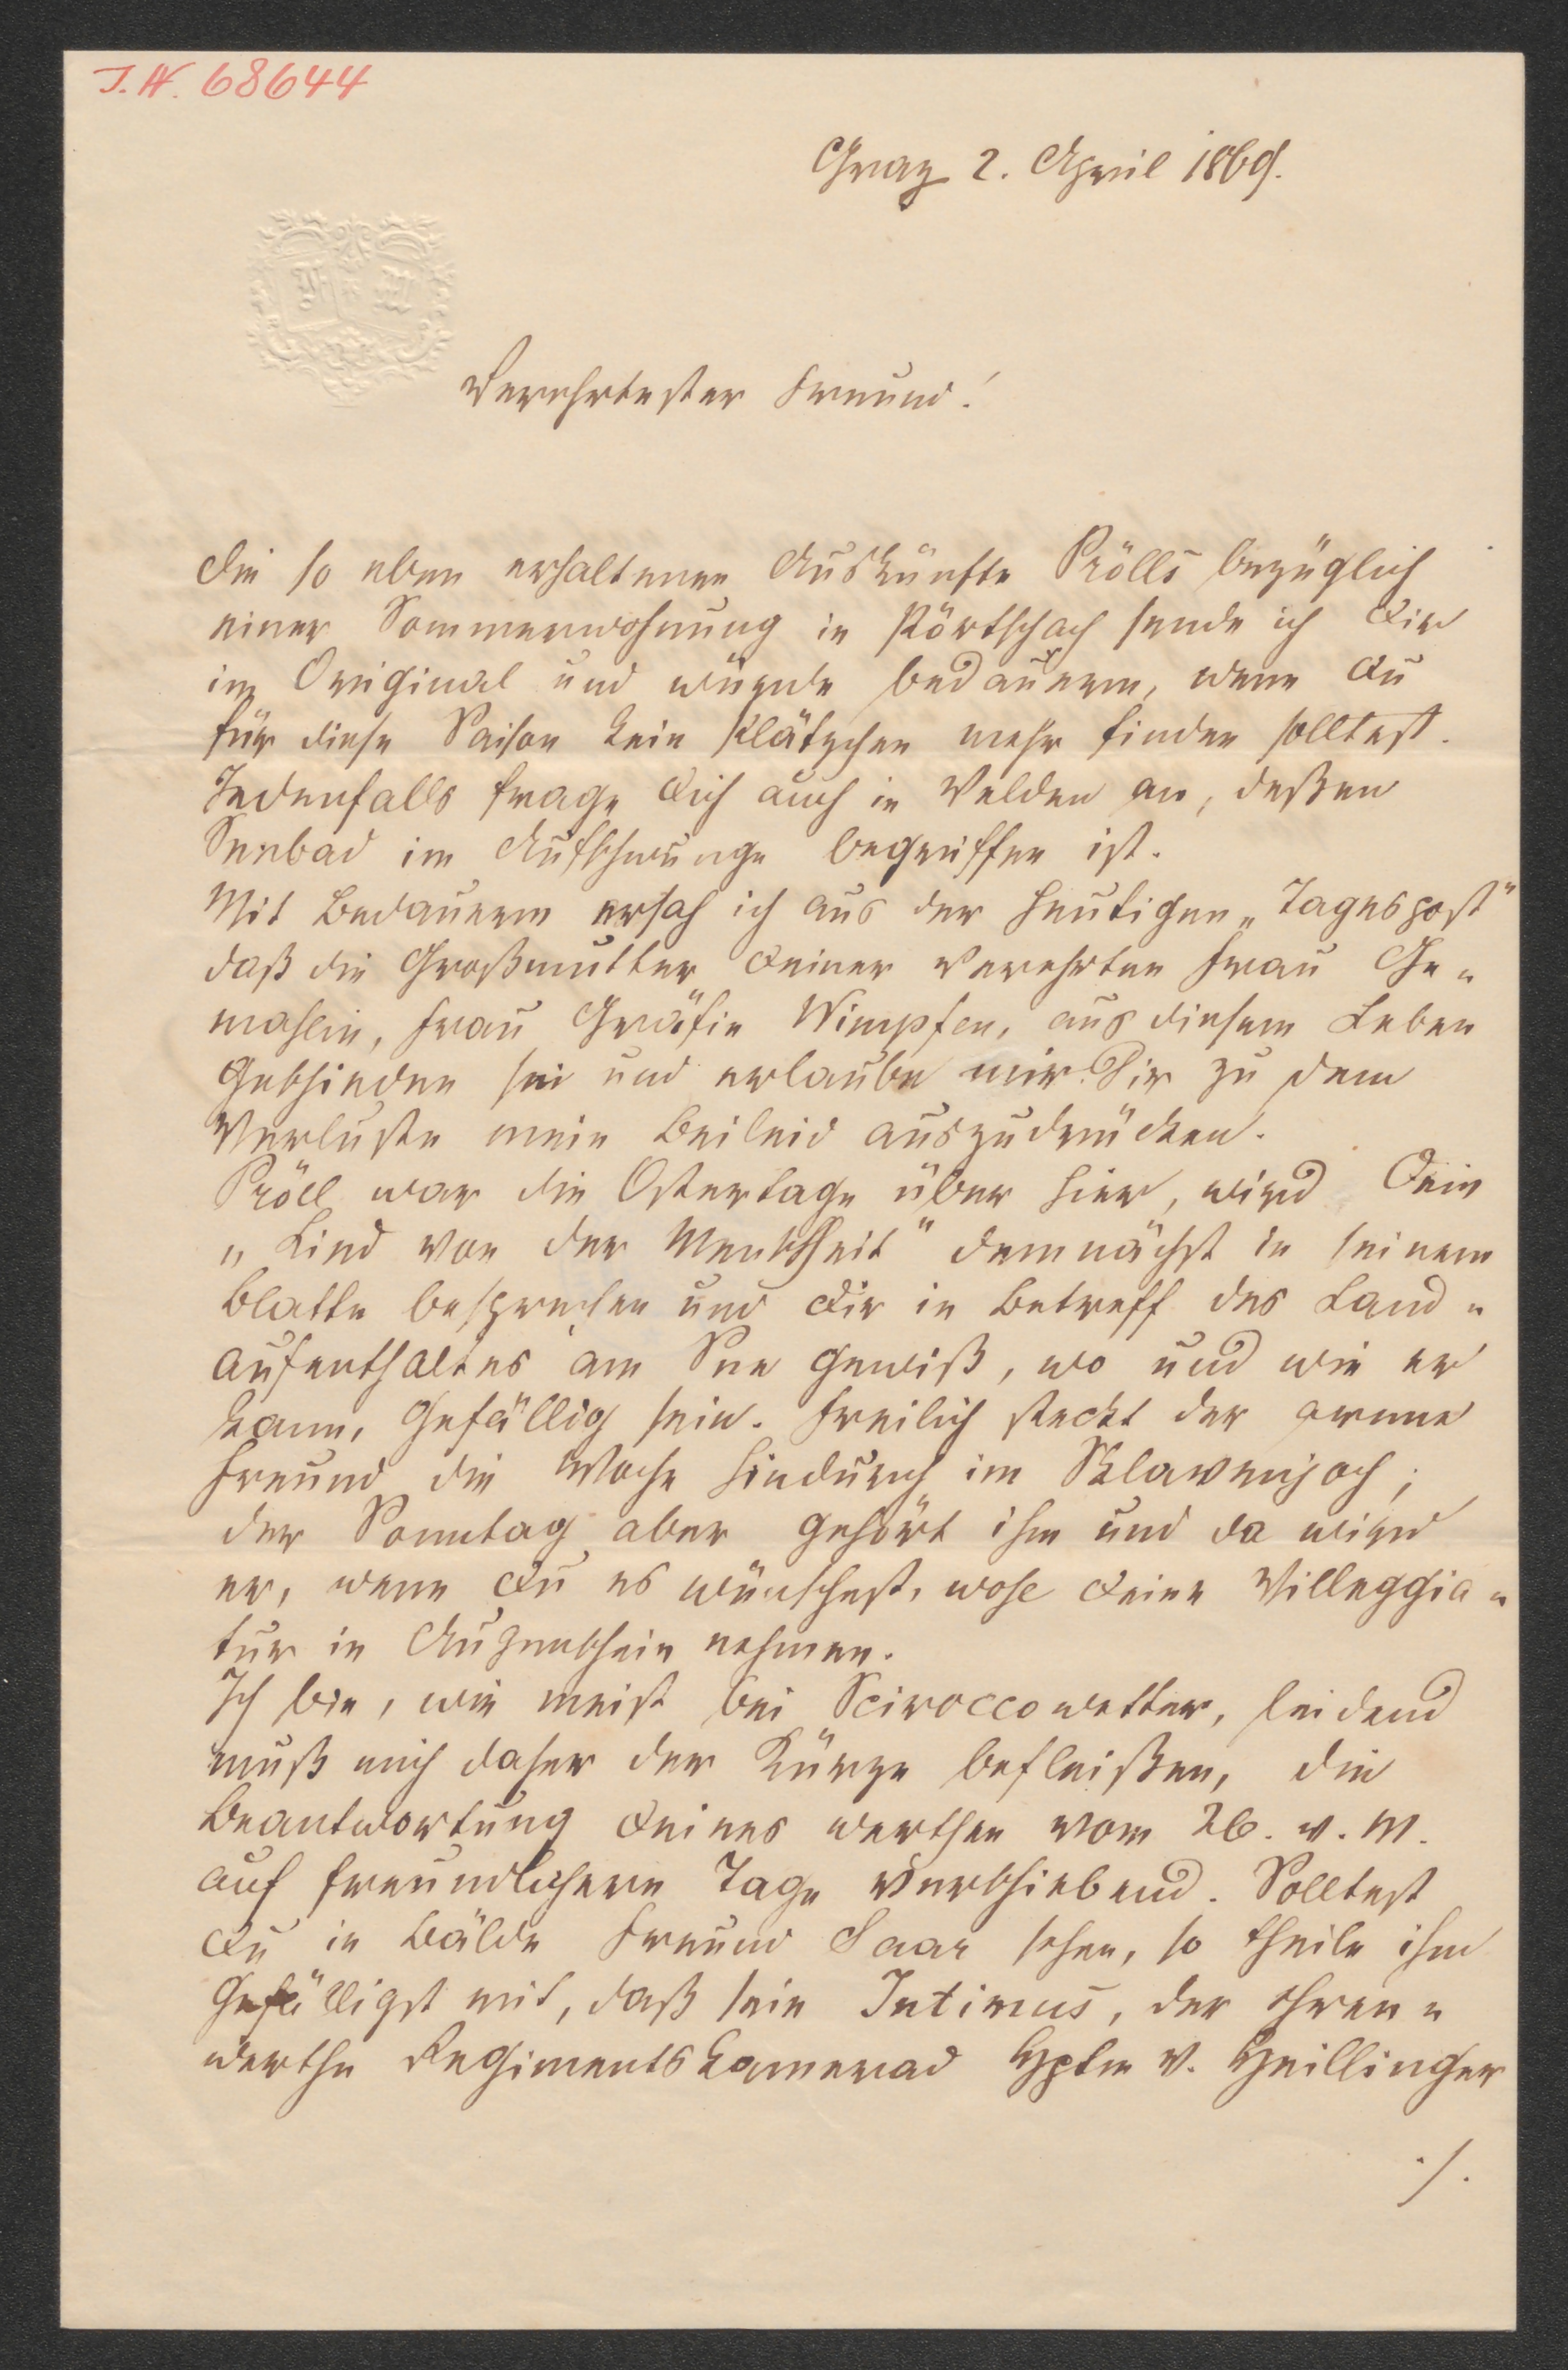 J. N. 68644
Graz 2. April 1869.
Verehrtester Freund!
Die so eben erhaltenen Auskünfte Prölls bezüglich
einer Sommerwohnung in Pörtschach sende ich Dir
im Original und würde bedauern, wenn Du
für diese Saison kein Plätzchen mehr finden solltest.
Jedenfalls frage Dich auch in Velden an, deßen
Seebad im Aufschwunge begriffen ist.
Mit Bedauern ersah ich aus der heutigen „Tagespost"
daß die Großmutter Deiner verehrten Frau Ge„
mahlin, Frau Gräfin Wimpfen, aus diesem Leben
geschieden sei und erlaube mir Dir zu dem
Verluste mein Beileid auszudrücken.
Pröll war die Ostertage über hier, wird Dein
„Lied von der Menschheit" demnächst in seinem
Blatte besprechen und Dir in Betreff des Land„
aufenthaltes am See gewiß, wo und wie er
kann, gefällig sein. Freilich steckt der arme
Freund die Woche hindurch im Sklavenjoch;
der Sonntag aber gehört ihm und da wird
er, wenn Du es wünschest, wohl Deine Villeggia„
tur in Augenschein nehmen.
Ich bin, wie meist bei Sciroccowetter, leidend
muß mich daher der Kürze befleißen, die
Beantwortung Deines werthen vom 26. v. M.
auf freundlichere Tage verschiebend. Solltest
Du in Bälde Freund Saar sehen, so theile ihm
gefälligst mit, daß sein Intimus, der ehren„
werthe Regimentskamerad Hptm v. Heillinger
./.